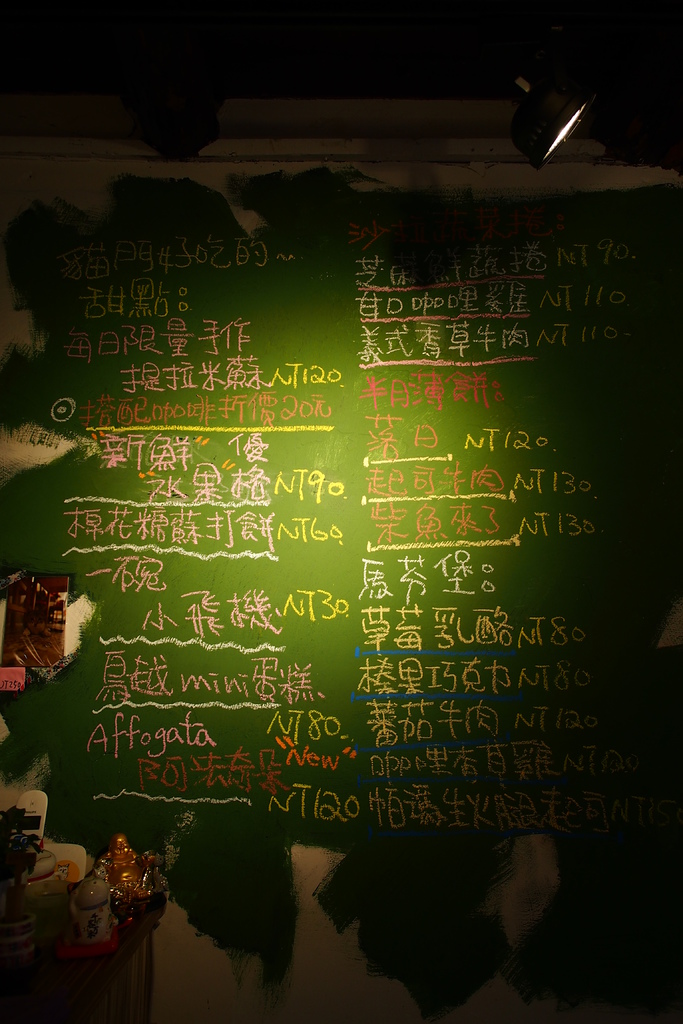 貓門好吃的~
甜點：
每日限量手作
提拉米蘇 NT120.
搭配咖啡折價20元
"新鮮" 優
水果格 NT90.
棉花糖蘇打餅 NT60.
一碗
小飛機 NT30.
mini蛋糕、
NT80.
Affogata
阿法奇朵 "New"
NT120
沙拉蔬果捲：
芝麻鮮蔬捲 NT90.
甘口咖哩雞 NT110.
義式香草牛肉 NT110.
半月薄餅：
落日 NT120.
起司牛肉 NT130.
柴魚來了 NT130.
馬芬堡：
草莓乳酪 NT80
榛果巧克力 NT80.
蕃茄牛肉 NT120
咖哩香草雞 NT120
帕瑪生火腿起司 NT150